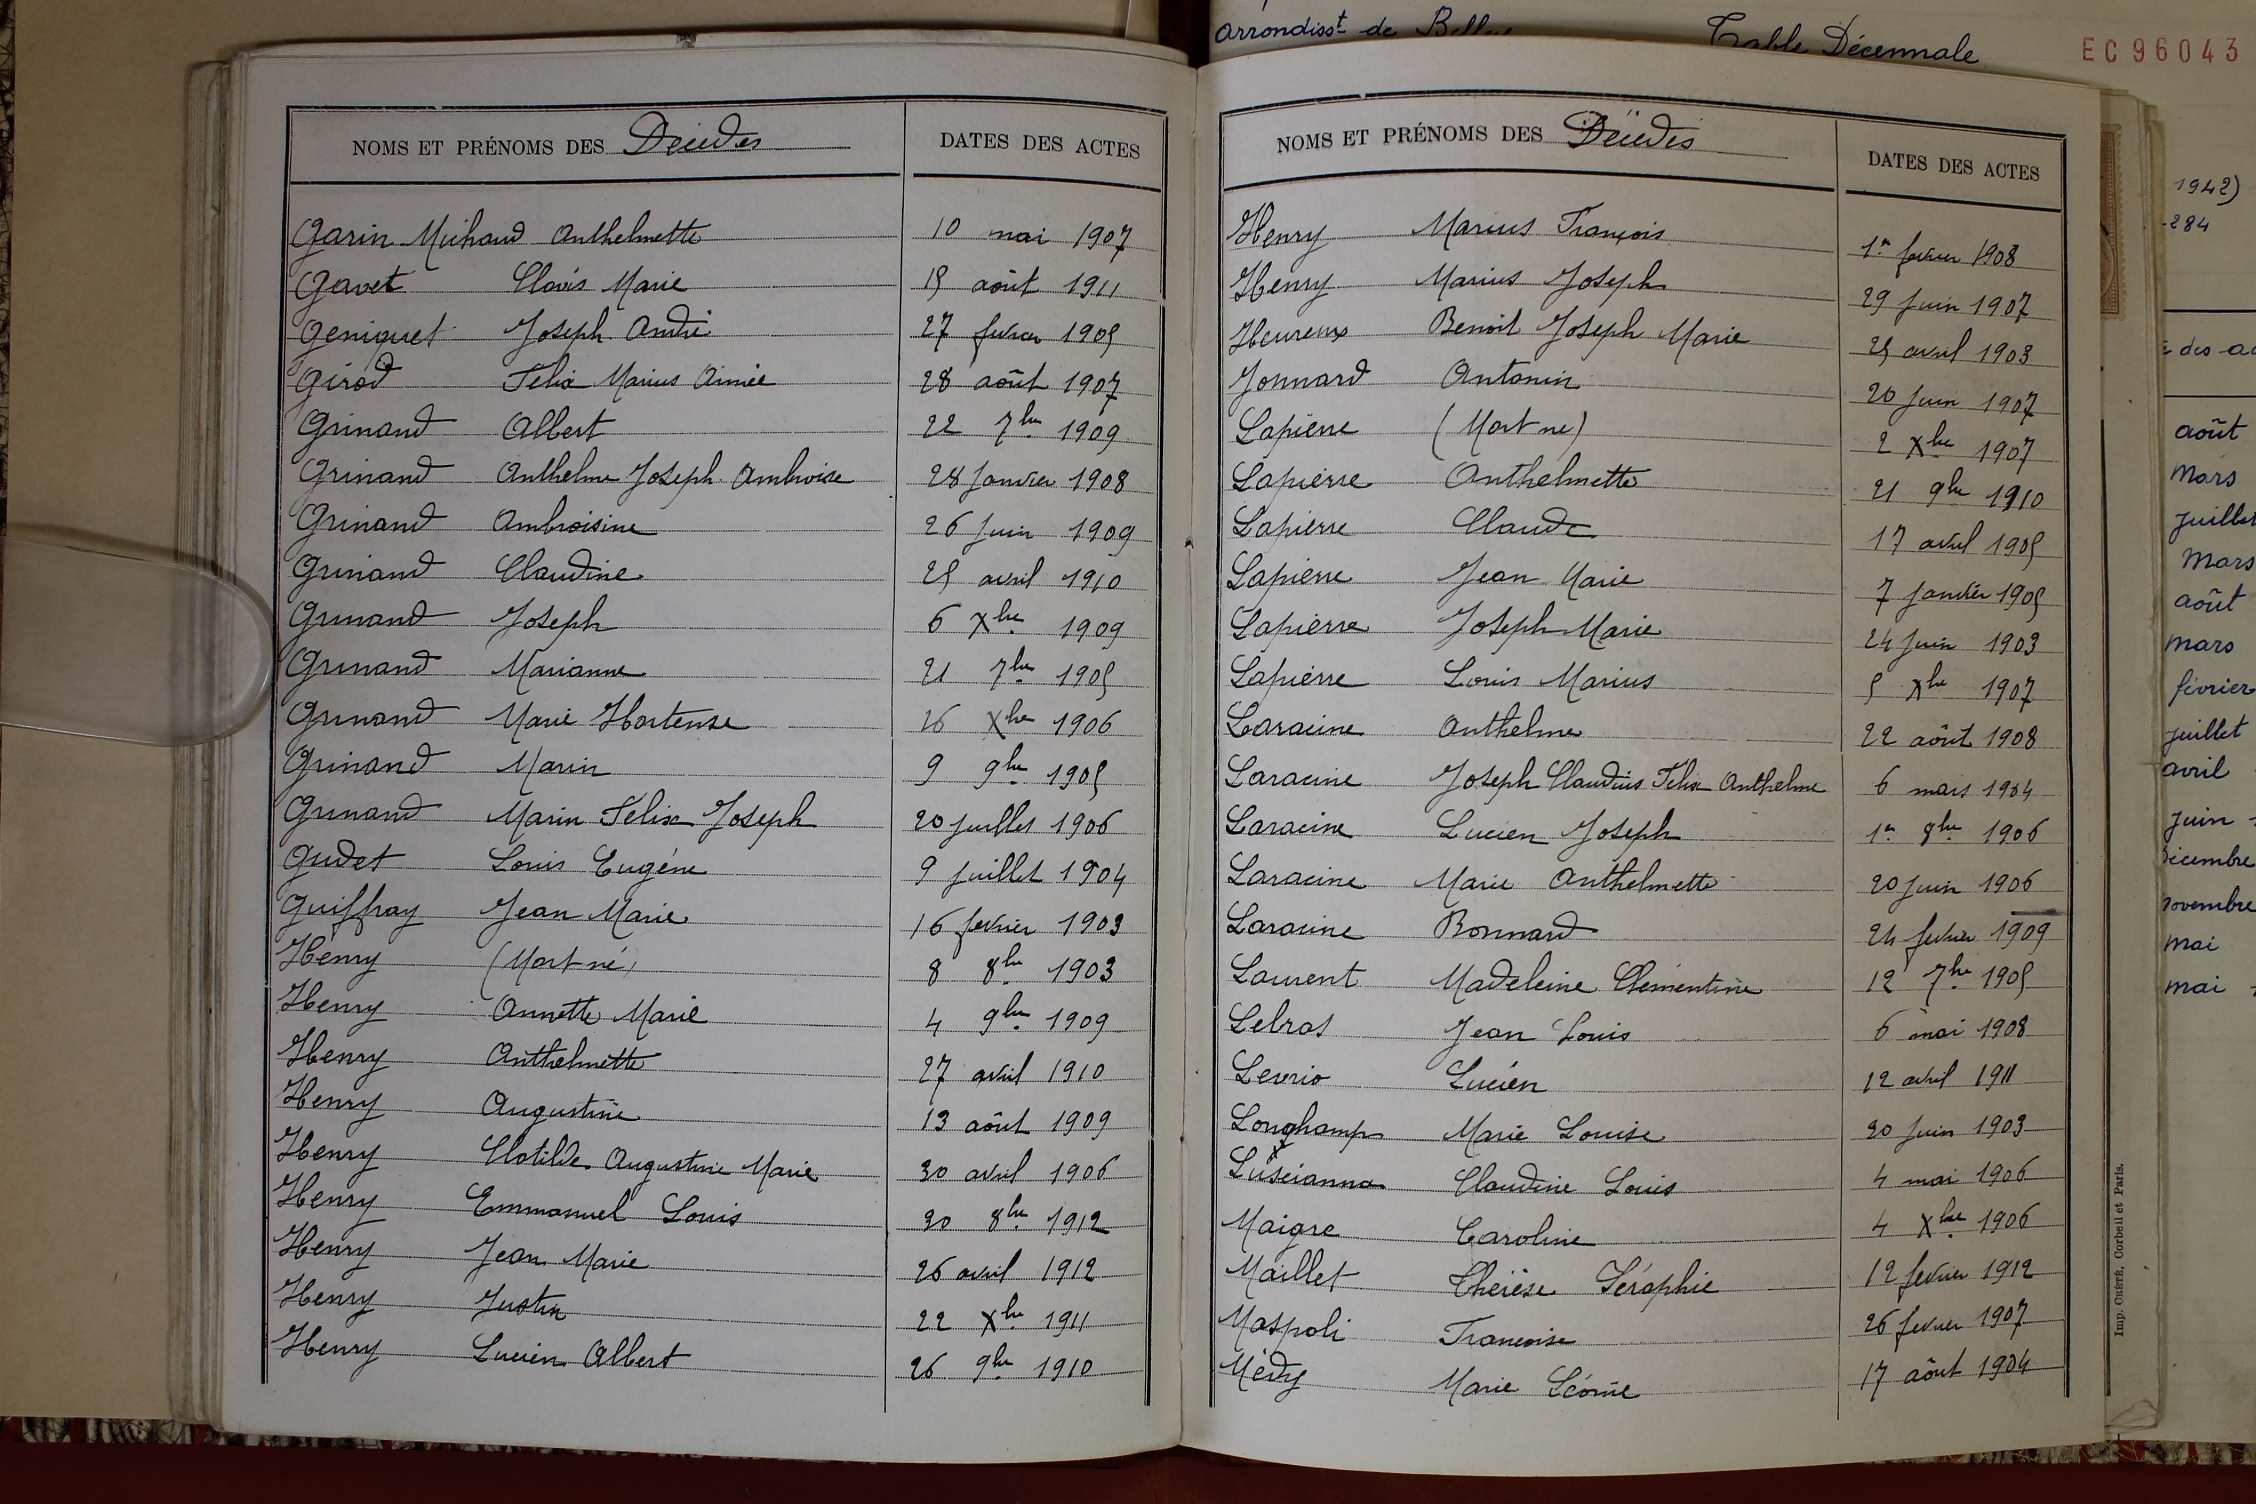 arrondisst de
Table Décennale
EC 96043
NOMS ET PRÉNOMS DES Décédés DATES DES ACTES
Garin Michaud Anthelmette 10 mai 1907
Gavet Clovis Marie 15 août 1911
Geniquet Joseph André 27 fevrier 1905
Girod Felix Marius Aimée 28 août 1907
Grinand Albert 22 7bre 1909
Grinand Anthelme Joseph Ambroise 28 Janvier 1908
Grinand Ambroisine 26 Juin 1909
Grinand Claudine 25 avril 1910
Grinand Joseph 6 Xbre 1909
Grinand Marianne 21 7bre 1905
Grinand Marie Hortense 16 Xbre 1906
Grinand Marin 9 9bre 1905
Grinand Marin Félix Joseph 20 juillet 1906
Gudet Louis Eugéne 9 juillet 1904
Guiffray Jean Marie 16 fevrier 1903
Henry (Mort né) 8 8bre 1903
Henry Annette Marie 4 9bre 1909
Henry Anthelmette 27 avril 1910
Henry Augustine 13 aôut 1909
Henry Clotilde Augustine Marie 30 avril 1906
Henry Emmanuel Louis 30 8bre 1912
Henry Jean Marie 26 avril 1912
Henry Justin 22 Xbre 1911
Henry Lucien Albert 26 9bre 1910
NOMS ET PRÉNOMS DES Décédés DATES DES ACTES
Henry Marius François 1er fevrier 1908
Henry Marius Joseph 29 Juin 1907
Heureux Benoit Joseph Marie 25 avril 1903
Jonnard Antonin 20 Juin 1907
Lapierre (Mort né) 2 Xbre 1907
Lapierre Anthelmette 21 9bre 1910
Lapierre Claude 17 avril 1905
Lapierre Jean Marie 7 Janvier 1905
Lapierre Joseph Marie 24 Juin 1903
Lapierre Louis Marius 5 Xbre 1907
Laracine Anthelme 22 aôut 1908
Laracine Joseph Claudius Félix Anthelme 6 mars 1904
Laracine Lucien Joseph 1er 8bre 1906
Laracine Marie Anthelmette 20 Juin 1906
Laracine Bonnard 24 fevrier 1909
Laurent Madeleine Clémentine 12 7bre 1905
Lebras Jean Louis 6 mai 1908
Levrio Lucien 12 avril 1911
Longhamp Marie Louise 30 Juin 1903
Luscianna Claudine Louis 4 mai 1906
Maigre Caroline 4 Xbre 1906
Maillet Thérèse Séraphie 12 fevrier 1912
Maspoli Francoise 26 fevrier 1907
Médy Marie Léonie 17 aôut 1904
Imp. CRÉTÉ, Corbeil et Paris.
1942)
284
des
août
Mars
juillet
Mars
août
mars
février
juillet
avril
juin
décembre
novembre
mai
mai